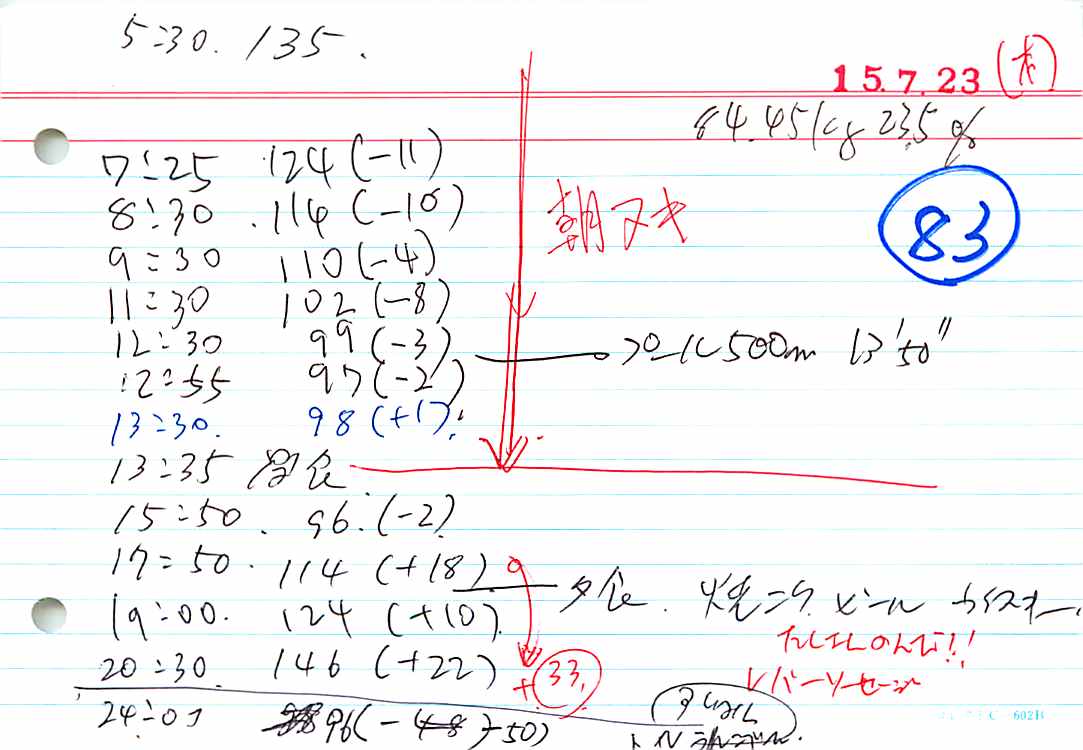 5:30. 135.
15.7.23 (木)
84.45kg 23.5%
7:25 124 (-11)
8:30 .114 (-10)
朝ヌキ
83
9:30 110 (-4)
11:30 102 (-8)
12:30 99 (-3)
プール500m 13'50"
12:55 97 (-2)
13:30. 98 (+1).
13:35 昼食
15:50. 96. (-2)
17:50. 114 (+18)
夕食. 焼ニク ビール
19:00. 124 (+10).
のんで!!
20:30. 146 (+22)
+33.
レバーソーセージ
24:00 96 (-50)
602B